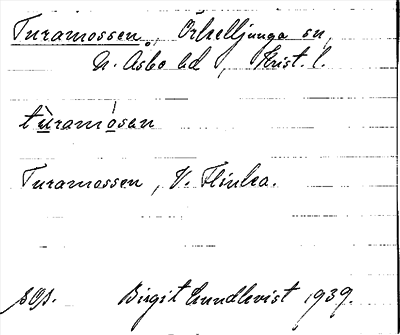 Turamossen, Örkelljunga sn,
N. Åsbo hd, Krist. l.
tùramósen
Turamossen, V. Flinka.
Birgit Lundkvist 1939.